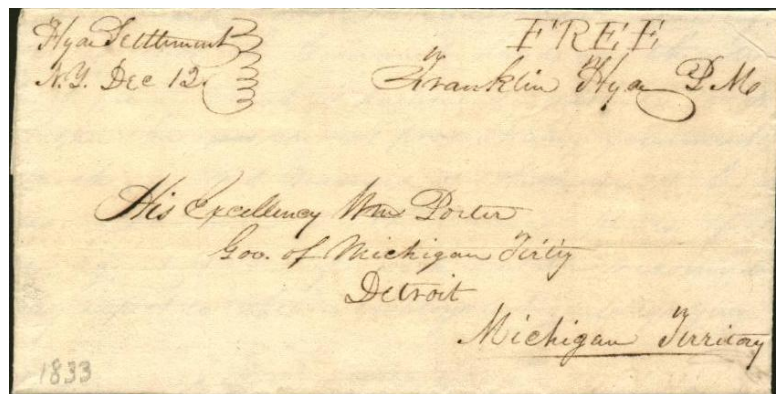 Hyde Settlement
N.Y. Dec 12
FREE
Franklin Hyde P.M.
His Excellency Wm Porter
Gov. of Michigan Tirty
Detroit
Michigan Territory
1833